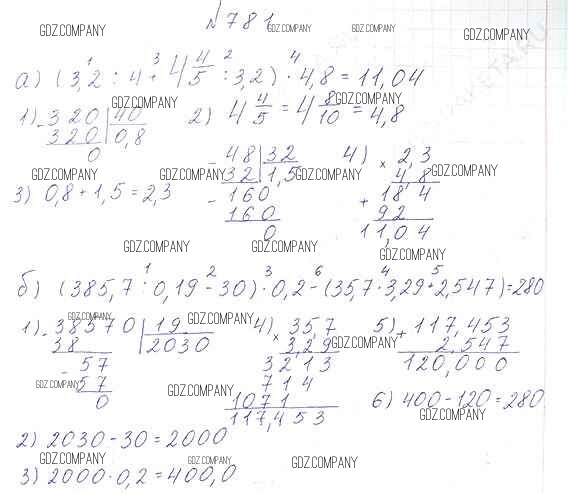 №781
GDZ.COMPANY GDZ.COMPANY GDZ.COMPANY GDZ.COMPANY
а) (3,2 : 4 + 4 4/5 : 3,2) · 4,8 = 11,04
1 3 2 4
1) 320 | 40 2) 4 4/5 = 4 8/10 = 4,8
GDZ.COMPANY GDZ.COMPANY
320 0,8
0
48 | 32 4) × 2,3
32 1,5 4,8
GDZ.COMPANY GDZ.COMPANY GDZ.COMPANY GDZ.COMPANY
3) 0,8 + 1,5 = 2,3 - 160 + 184
160 92
0 11,04
GDZ.COMPANY GDZ.COMPANY GDZ.COMPANY
1 2 3 6 4 5
б) (385,7 : 0,19 - 30) · 0,2 - (35,7 · 3,29 + 2,547) = 280
1) - 38570 | 19 4) × 35,7 5) + 117,453
GDZ.COMPANY GDZ.COMPANY GDZ.COMPANY
38 2030 3,29 2,547
- 57 3213 120,000
57 714
GDZ.COMPANY GDZ.COMPANY
0 1071 6) 400 - 120 = 280
117,453
GDZ.COMPANY
2) 2030 - 30 = 2000
GDZ.COMPANY GDZ.COMPANY GDZ.COMPANY
3) 2000 · 0,2 = 400,0
GDZ.COMPANY